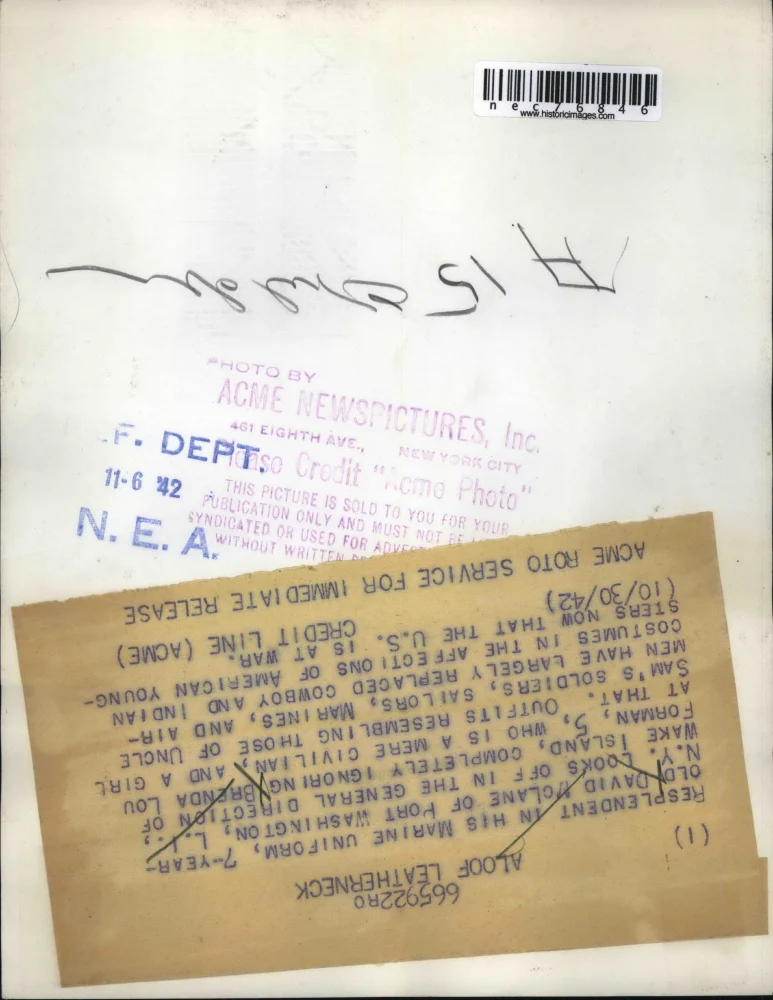 nec76846
www.historicimages.com
15
PHOTO BY
ACME NEWSPICTURES, Inc.
461 EIGHTH AVE., NEW YORK CITY
Please Credit "Acme Photo"
THIS PICTURE IS SOLD TO YOU FOR YOUR
PUBLICATION ONLY AND MUST NOT BE
SYNDICATED OR USED FOR
WITHOUT WRITTEN
F. DEPT.
11-6 '42
N. E. A.
665922RO
ALOOF LEATHERNECK
(1)
RESPLENDENT IN HIS MARINE UNIFORM, 7-YEAR-
OLD DAVID MCLANE OF PORT WASHINGTON, L.I.,
N.Y. LOOKS OFF IN THE GENERAL DIRECTION OF
WAKE ISLAND, COMPLETELY IGNORING BRENDA LOU
FORMAN, 5, WHO IS A MERE CIVILIAN, AND A GIRL
AT THAT. OUTFITS RESEMBLING THOSE OF UNCLE
SAM'S SOLDIERS, SAILORS, MARINES, AND AIR-
MEN HAVE LARGELY REPLACED COWBOY AND INDIAN
COSTUMES IN THE AFFECTIONS OF AMERICAN YOUNG-
STERS NOW THAT THE U.S. IS AT WAR.
(10/30/42) CREDIT LINE (ACME)
ACME ROTO SERVICE FOR IMMEDIATE RELEASE